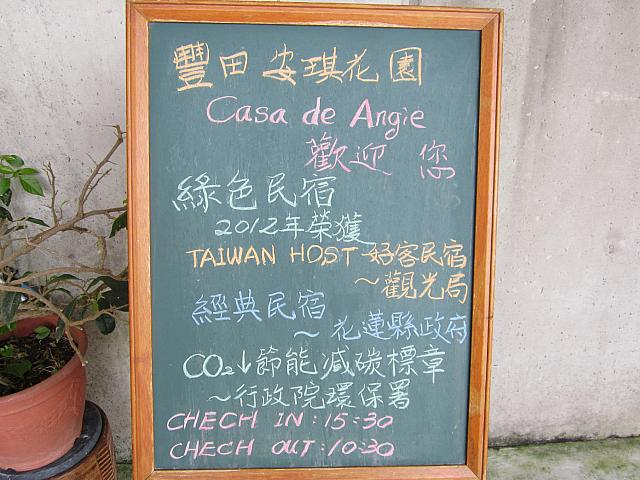 豐田 安琪花園
Casa de Angie
歡迎 您
綠色民宿
2012年榮獲
TAIWAN HOST 好客民宿
～觀光局
經典民宿
～花蓮縣政府
CO₂↓節能減碳標章
～行政院環保署
CHECH IN：15:30
CHECH OUT：10:30